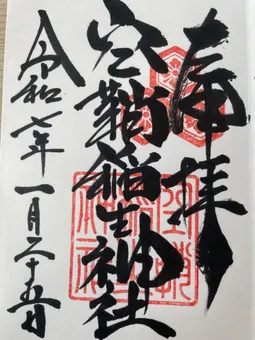 奉拝
空鞘稲生神社
令和七年一月二十五日